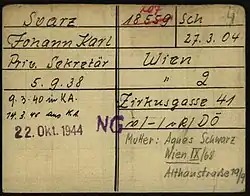 Svarz 18.559 Sch
Johann Karl 27.3.04
Priv. Sekretär Wien
5.9.38 " 2
9.3.40 in KA. Zirkusgasse 41
14.3.40 aus KA
22. Okt. 1944 NG DÖ
Mutter: Agnes Schwarz
Wien IX/68
Althanstraße